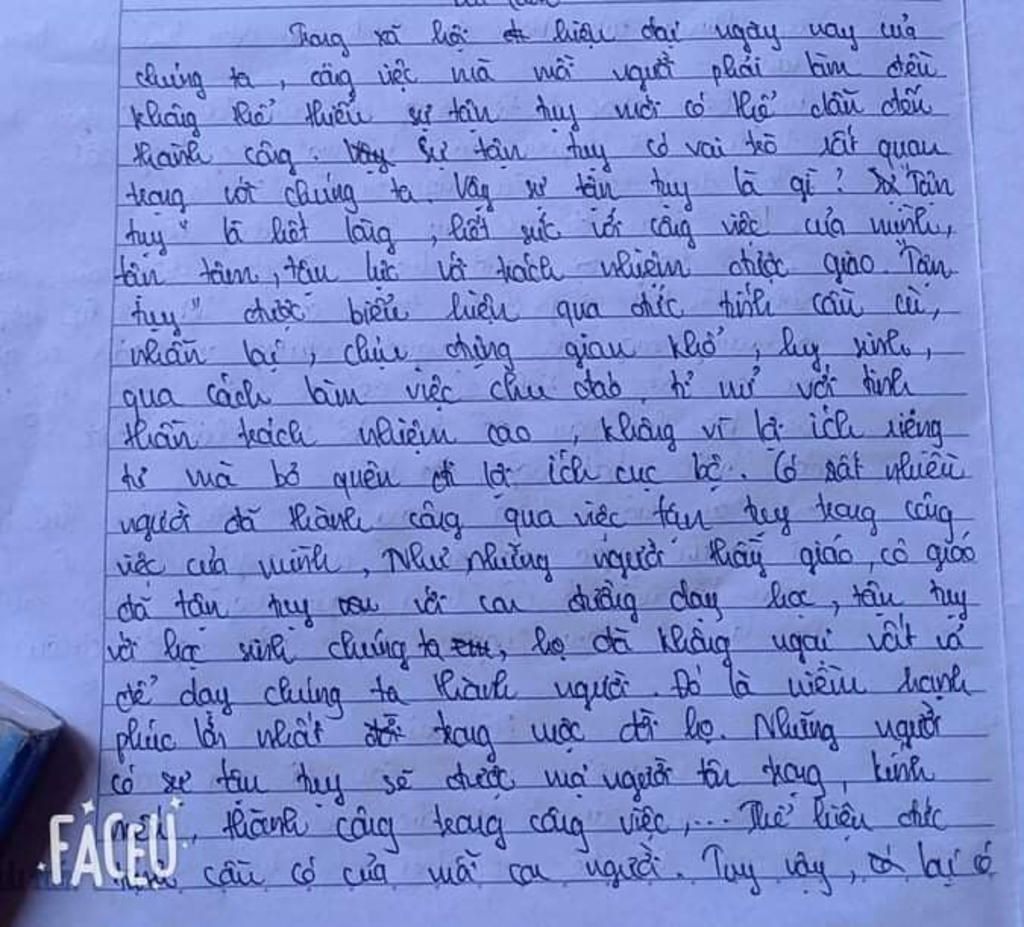 Trong xã hội hiện đại ngày nay của
chúng ta, công việc mà mỗi người phải làm đều
không thể thiếu sự tận tụy mới có thể dẫn đến
thành công. Vậy sự tận tụy có vai trò rất quan
trọng với chúng ta. Vậy sự tận tụy là gì? "Tận
tụy" là hết lòng, hết sức với công việc của mình,
tận tâm, tận lực với trách nhiệm được giao. "Tận
tụy" được biểu hiện qua đức tính cần cù,
nhẫn lại, chịu đựng gian khổ, hy sinh,
qua cách làm việc chu đáo, tỉ mỉ với tinh
thần trách nhiệm cao, không vì lợi ích riêng
tư mà bỏ quên đi lợi ích cục bộ. Có rất nhiều
người đã thành công qua việc tận tụy trong công
việc của mình, Như những người thầy giáo, cô giáo
đã tận tụy với con đường dạy học, tận tụy
với học sinh chúng ta, họ đã không ngại vất vả
để dạy chúng ta thành người. Đó là niềm hạnh
phúc lớn nhất trong cuộc đời họ. Những người
có sự tận tụy sẽ được mọi người tôn trọng, kính
mến, thành công trong công việc,... Thể hiện đức
cần có của mỗi con người. Tuy vậy, lại có
FACEU